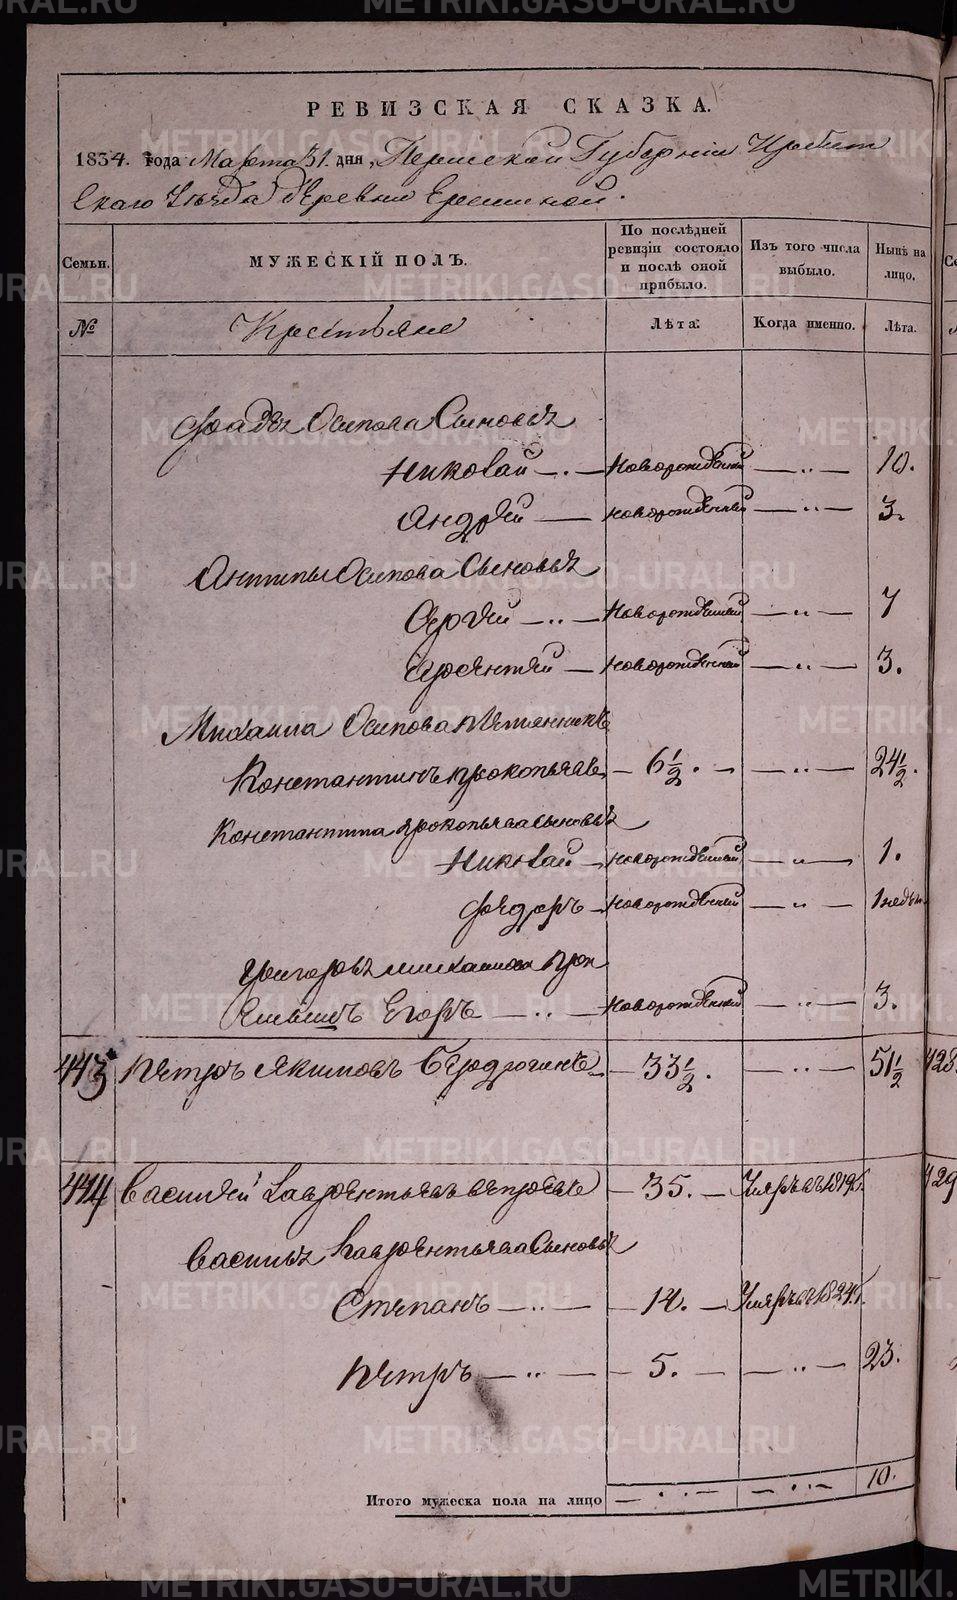 РЕВИЗСКАЯ СКАЗКА.
1834. года Марта 31. дня, Пермской Губернiи Ирбит
скаго Уѣзда деревни Еремеиной.
Семьи. МУЖЕСКIЙ ПОЛЪ. По послѣдней ревизiи состояло и послѣ оной прибыло. Изъ того числа выбыло. Нынѣ на лицо.
№ Крестьяне Лѣта. Когда именно. Лѣта.
Фадѣя Осипова Сыновья
Николай — новорожденный — 10.
Андрей — новорожденный — 3.
Антипы Осипова Сыновья
Сергей — новорожденный — 7
Арсентей — новорожденный — 3.
Михаила Осипова племянникъ
Константинъ Прокопьевъ — 6½. — 24½.
Константина Прокопьева сыновья
Николай — новорожденный — 1.
Федоръ — новорожденный — 1 недѣл.
Григорья Михаилова
Егоръ — новорожденный — 3.
443 Петръ Якимовъ Бердюгинъ — 33½. — 51½
444 Василей Лаврентьевъ — 35. — Умеръ въ 1819 г.
Василья Лаврентьева Сыновья
Степанъ — 14. — Умеръ въ 1824 г.
Петръ — 5. — 23.
Итого мужеска пола на лицо — 10.
428
429
METRIKI.GASO-URAL.RU